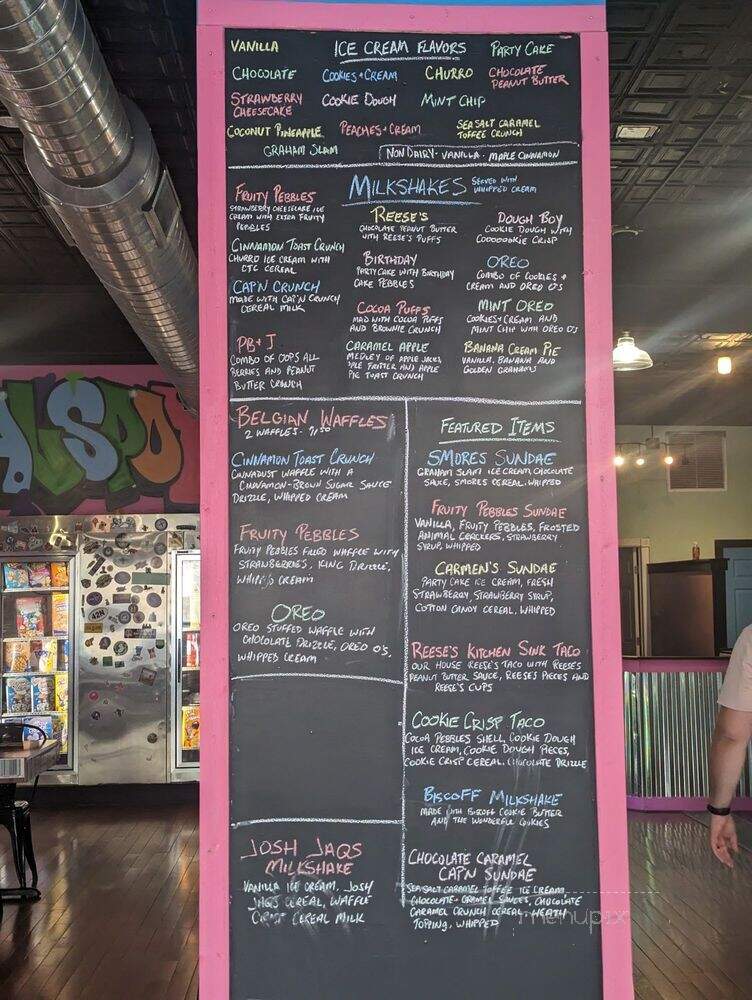 VANILLA
ICE CREAM FLAVORS
PARTY CAKE
CHOCOLATE
COOKIES + CREAM
CHURRO
CHOCOLATE
PEANUT BUTTER
STRAWBERRY
CHEESECAKE
COOKIE DOUGH
MINT CHIP
COCONUT PINEAPPLE
PEACHES + CREAM
SEA SALT CARAMEL
TOFFEE CRUNCH
GRAHAM SLAM
NON DAIRY · VANILLA · MAPLE CINNAMON
MILKSHAKES
SERVED WITH
WHIPPED CREAM
FRUITY PEBBLES
STRAWBERRY CHEESECAKE ICE
CREAM WITH EXTRA FRUITY
PEBBLES
CINNAMON TOAST CRUNCH
CHURRO ICE CREAM WITH
CTC CEREAL
CAP'N CRUNCH
MADE WITH CAP'N CRUNCH
CEREAL MILK
PB + J
COMBO OF OOPS ALL
BERRIES AND PEANUT
BUTTER CRUNCH
REESE'S
CHOCOLATE PEANUT BUTTER
WITH REESE'S PUFFS
BIRTHDAY
PARTY CAKE WITH BIRTHDAY
CAKE PEBBLES
COCOA PUFFS
MAD WITH COCOA PUFFS
AND BROWNIE CRUNCH
CARAMEL APPLE
MEDLEY OF APPLE JACKS,
FRITTER AND APPLE
PIE TOAST CRUNCH
DOUGH BOY
COOKIE DOUGH WITH
COOOOOKIE CRISP
OREO
COMBO OF COOKIES +
CREAM AND OREO O'S
MINT OREO
COOKIES + CREAM AND
MINT CHIP WITH OREO O'S
BANANA CREAM PIE
VANILLA, BANANA AND
GOLDEN GRAHAMS
BELGIAN WAFFLES
2 WAFFLES -
CINNAMON TOAST CRUNCH
CINNADUST WAFFLE WITH A
CINNAMON-BROWN SUGAR SAUCE
DRIZZLE, WHIPPED CREAM
FRUITY PEBBLES
FRUITY PEBBLES FILLED WAFFLE WITH
STRAWBERRIES, ICING DRIZZLE,
WHIPPED CREAM
OREO
OREO STUFFED WAFFLE WITH
CHOCOLATE DRIZZLE, OREO O'S,
WHIPPED CREAM
JOSH JAQS
MILKSHAKE
VANILLA ICE CREAM, JOSH
JAQS CEREAL, WAFFLE
CRISP CEREAL MILK
FEATURED ITEMS
SMORES SUNDAE
GRAHAM SLAM ICE CREAM, CHOCOLATE
SAUCE, SMORES CEREAL, WHIPPED
FRUITY PEBBLES SUNDAE
VANILLA, FRUITY PEBBLES, FROSTED
ANIMAL CRACKERS, STRAWBERRY
SYRUP, WHIPPED
CARMEN'S SUNDAE
PARTY CAKE ICE CREAM, FRESH
STRAWBERRY, STRAWBERRY SYRUP,
COTTON CANDY CEREAL, WHIPPED
REESE'S KITCHEN SINK TACO
OUR HOUSE REESE'S TACO WITH REESE'S
PEANUT BUTTER SAUCE, REESE'S PIECES AND
REESE'S CUPS
COOKIE CRISP TACO
COCOA PEBBLES SHELL, COOKIE DOUGH
ICE CREAM, COOKIE DOUGH PIECES,
COOKIE CRISP CEREAL, CHOCOLATE DRIZZLE
BISCOFF MILKSHAKE
MADE WITH BISCOFF COOKIE BUTTER
AND THE WONDERFUL COOKIES
CHOCOLATE CARAMEL
CAP'N SUNDAE
SEA SALT CARAMEL TOFFEE ICE CREAM
CHOCOLATE + CARAMEL SAUCES, CHOCOLATE
CARAMEL CRUNCH CEREAL, HEATH
TOPPING, WHIPPED
menupix